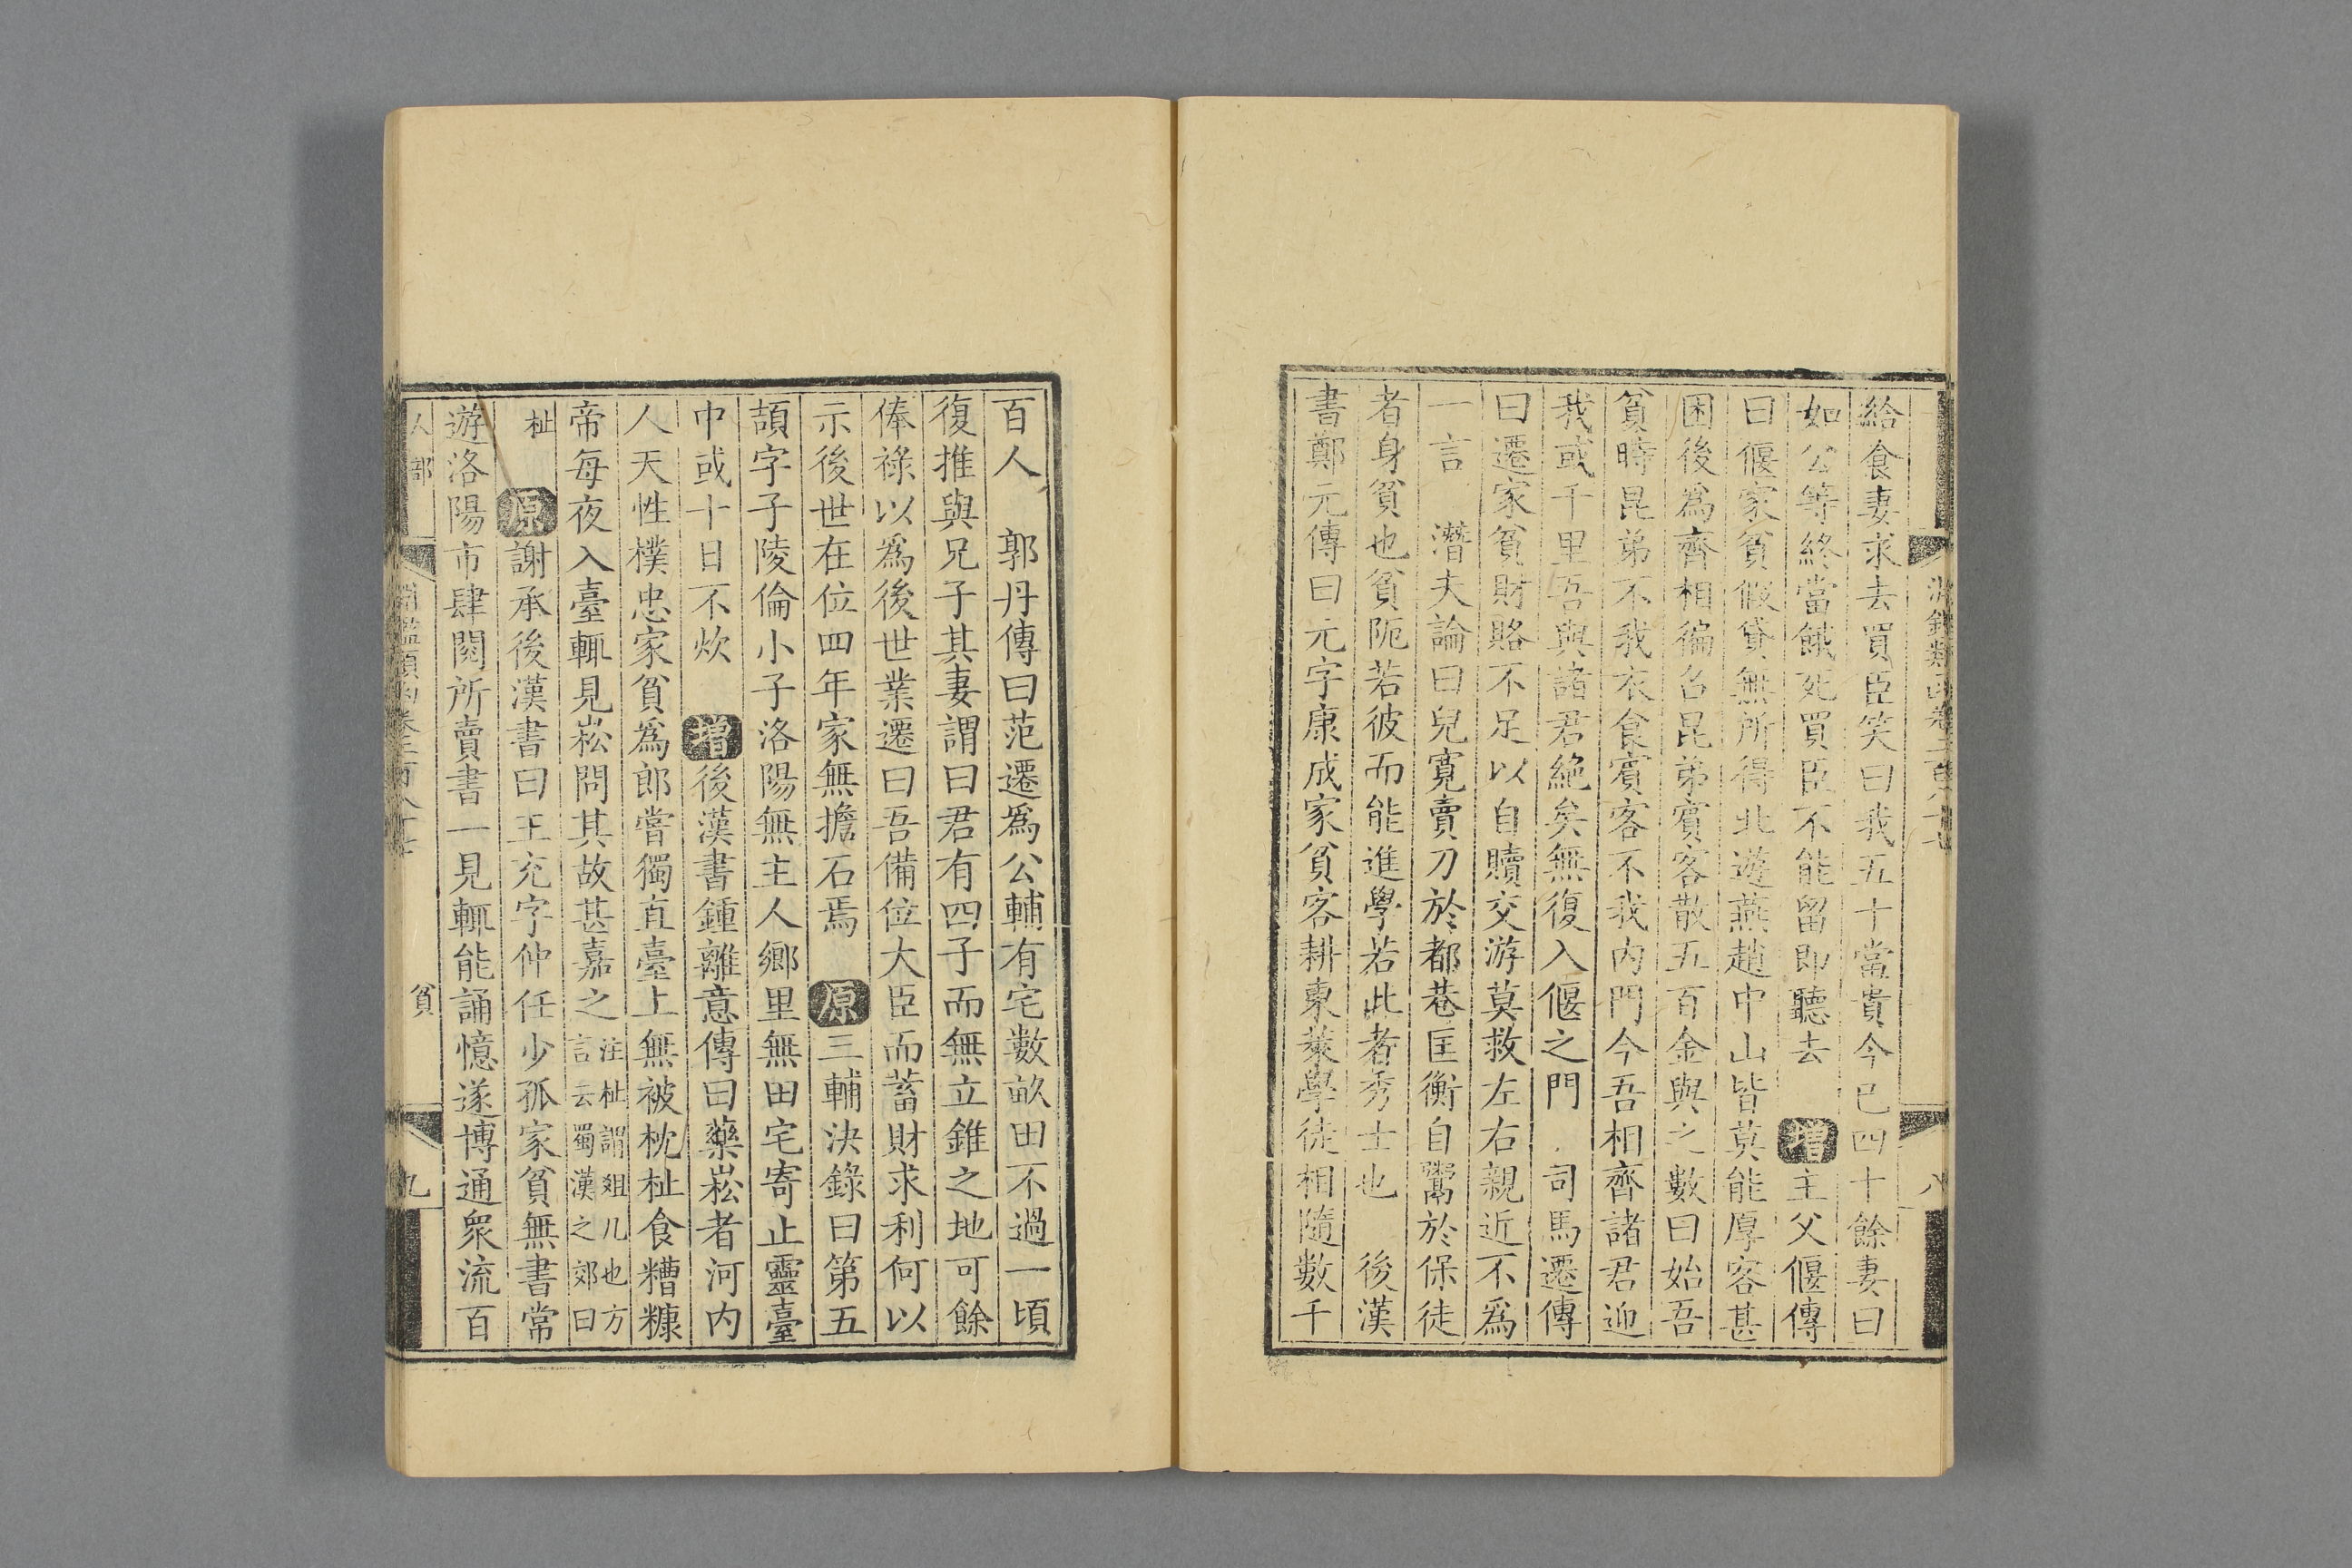 給食妻求去買臣笑曰我五十當貴今已四十餘妻曰
如公等終當餓死買臣不能留即聽去 增主父偃傳
曰偃家貧假貸無所得北遊燕趙中山皆莫能厚客甚
困後爲齊相徧召昆弟賓客散五百金與之數曰始吾
貧時昆弟不我衣食賓客不我内門今吾相齊諸君迎
我或千里吾與諸君絶矣無復入偃之門 司馬遷傳
曰遷家貧財賂不足以自贖交游莫救左右親近不爲
一言 潛夫論曰兒寛賣刀於都巷匡衡自鬻於保徒
者身貧也貧阨若彼而能進學若此者秀士也 後漢
書鄭元傳曰元字康成家貧客耕東萊學徒相隨數千
百人 郭丹傳曰范遷爲公輔有宅數畝田不過一頃
復推與兄子其妻謂曰君有四子而無立錐之地可餘
俸祿以爲後世業遷曰吾備位大臣而蓄財求利何以
示後世在位四年家無擔石焉 原三輔決錄曰第五
頡字子陵倫小子洛陽無主人鄉里無田宅寄止靈臺
中或十日不炊 增後漢書鍾離意傳曰藥崧者河内
人天性樸忠家貧爲郎嘗獨直臺上無被枕杫食糟糠
帝每夜入臺輒見崧問其故甚嘉之注杫謂俎几也方言云蜀漢之郊曰
杫 原謝承後漢書曰王充字仲任少孤家貧無書常
遊洛陽市肆閱所賣書一見輒能誦憶遂博通衆流百
人部 淵鑑類函卷二百八十七 貧 九